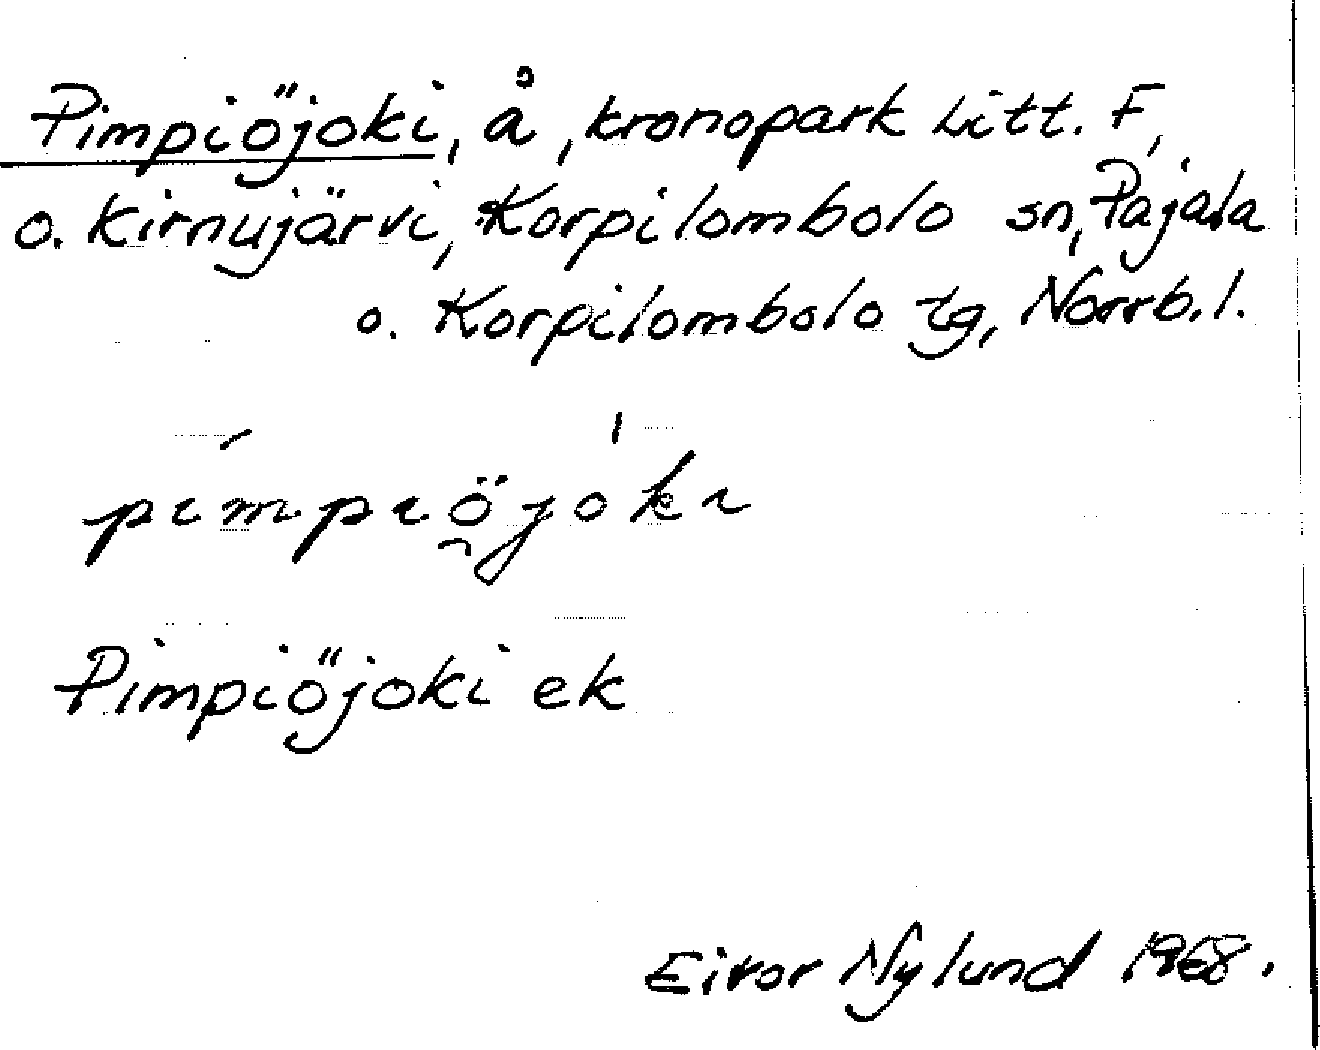 Pimpiöjoki, å, kronopark Litt. F,
o. Kirnujärvi, Korpilombolo sn, Pajala
o. Korpilombolo tg, Norrb. l.
pìmpiö̯jóki
Pimpiöjoki ek
Eivor Nylund 1968.